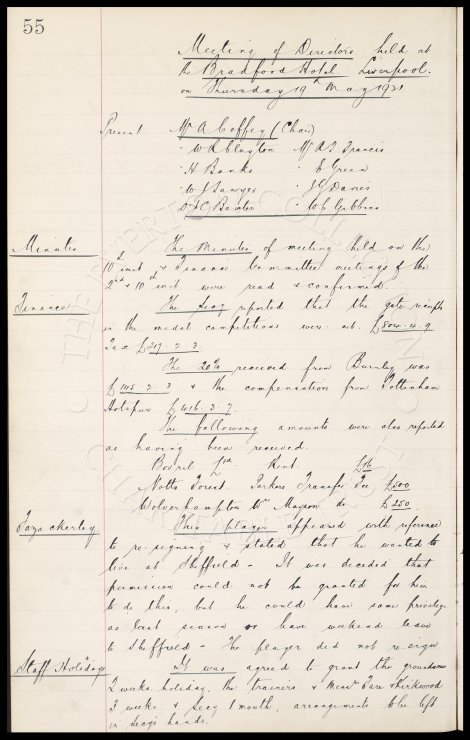 55
Meeting of Directors held at
the Bradford Hotel Liverpool.
on Thursday 19th May 1921
Present Mr A Coffey (Chair)
" W R Clayton Mr A T Francis
" H Banks " E Green
" W J Sawyer " J G Davies
Dr J C Baxter " W C Gibbins
Minutes The Minutes of meeting held on the
10th inst & Finance Committee meetings of the
2nd & 10th inst were read & confirmed.
Finance The Secy reported that the gate receipts
in the medal competitions were
Tax £217.2.3.
The 20% received from Burnley was
£145.2.3 & the compensation from Tottenham
Hotspur £416.3.7.
The following amounts were also reported
as having been received.
Bovril Rent.
Notts Forest. Parkers Transfer Fee £500
Wolverhampton Wrs Mayson do £250.
Fazackerley This player appeared with reference
to re-signing & stated that he wanted to
live at Sheffield - It was decided that
permission could not be granted for him
to do this, but he could have same privilege
as last season or have weekend leave
to Sheffield - The player did not re-sign
Staff Holidays It was agreed to grant the groundsmen
2 weeks holiday, the trainers & Messrs Fare & Kirkwood
3 weeks & Secy 1 month, arrangements to be left
in Secy's hands.